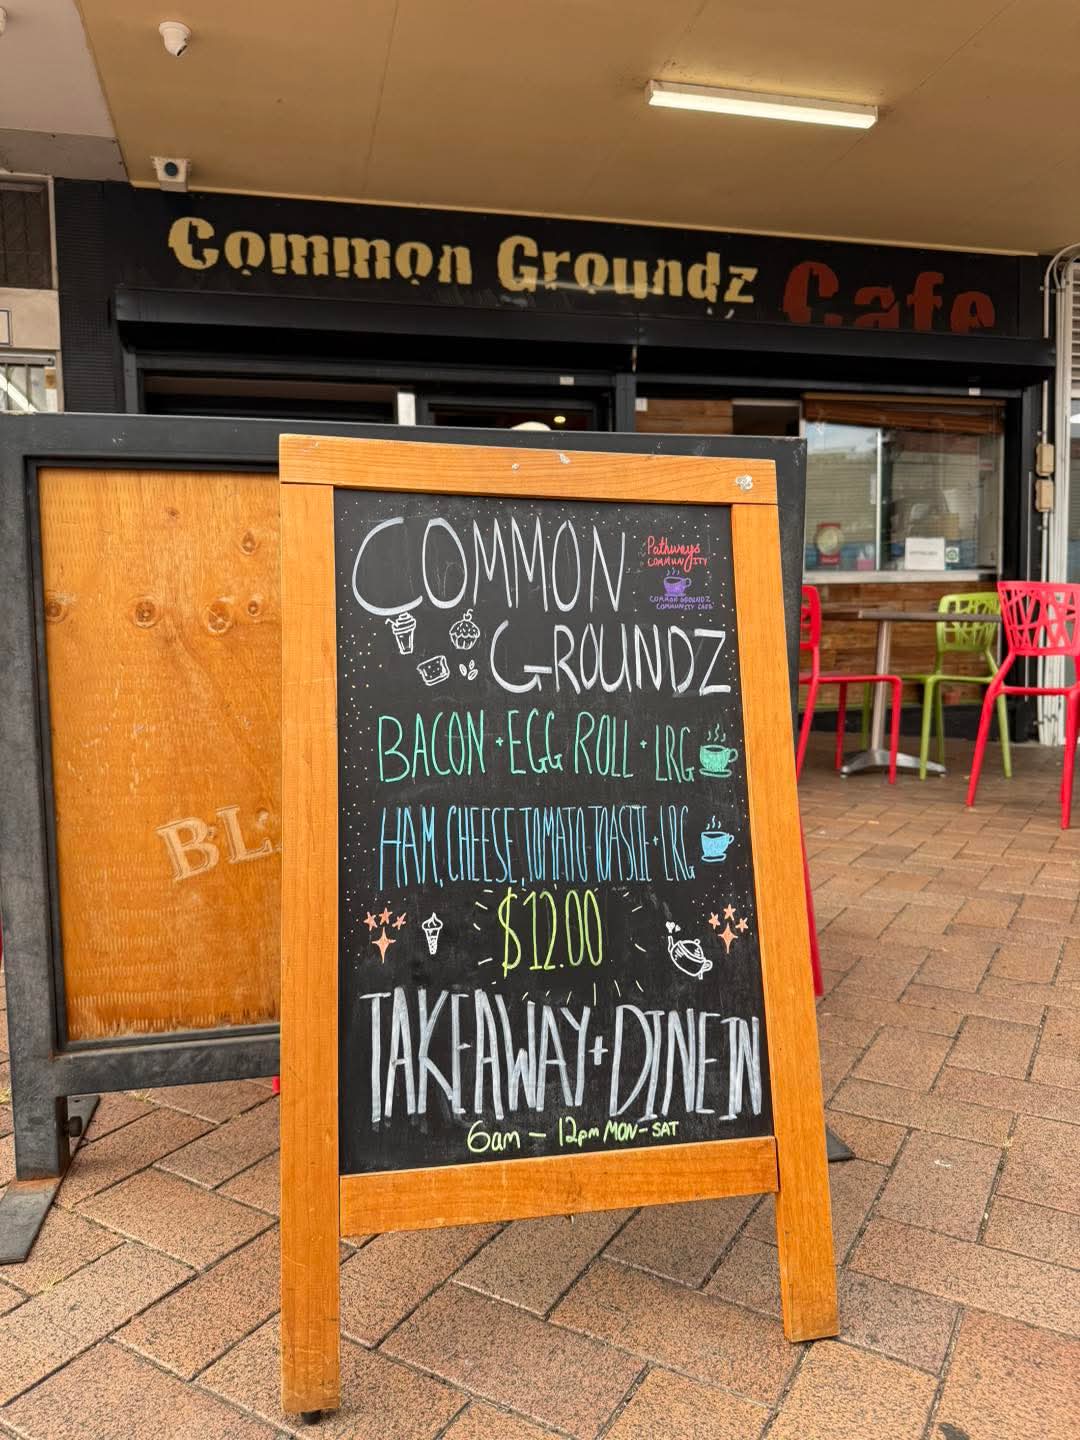 Common Groundz Cafe
COMMON
GROUNDZ
Pathways
COMMUNITY
COMMON GROUNDZ
COMMUNITY CAFE
BACON + EGG ROLL + LRG
HAM, CHEESE, TOMATO TOASTIE + LRG
$12.00
TAKEAWAY + DINE IN
6am - 12pm MON - SAT